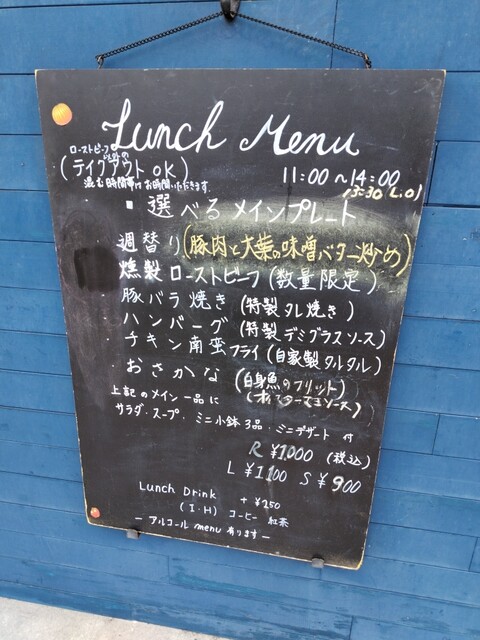 Lunch Menu
ローストビーフ以外の
(テイクアウトOK)
混む時間帯はお時間いただきます。
11:00〜14:00
13:30 L.O)
▪ 選べるメインプレート
週替り(豚肉と大葉の味噌バター炒め)
燻製ローストビーフ(数量限定)
豚バラ焼き(特製タレ焼き)
ハンバーグ(特製デミグラスソース)
チキン南蛮フライ(自家製タルタル)
おさかな(白身魚のフリット)
上記のメイン一品に
サラダ・スープ・ミニ小鉢3品・ミニデザート付
R ¥1000 (税込)
L ¥1100 S ¥900
Lunch Drink + ¥250
(I・H) コーヒー 紅茶
— アルコール menu 有ります —